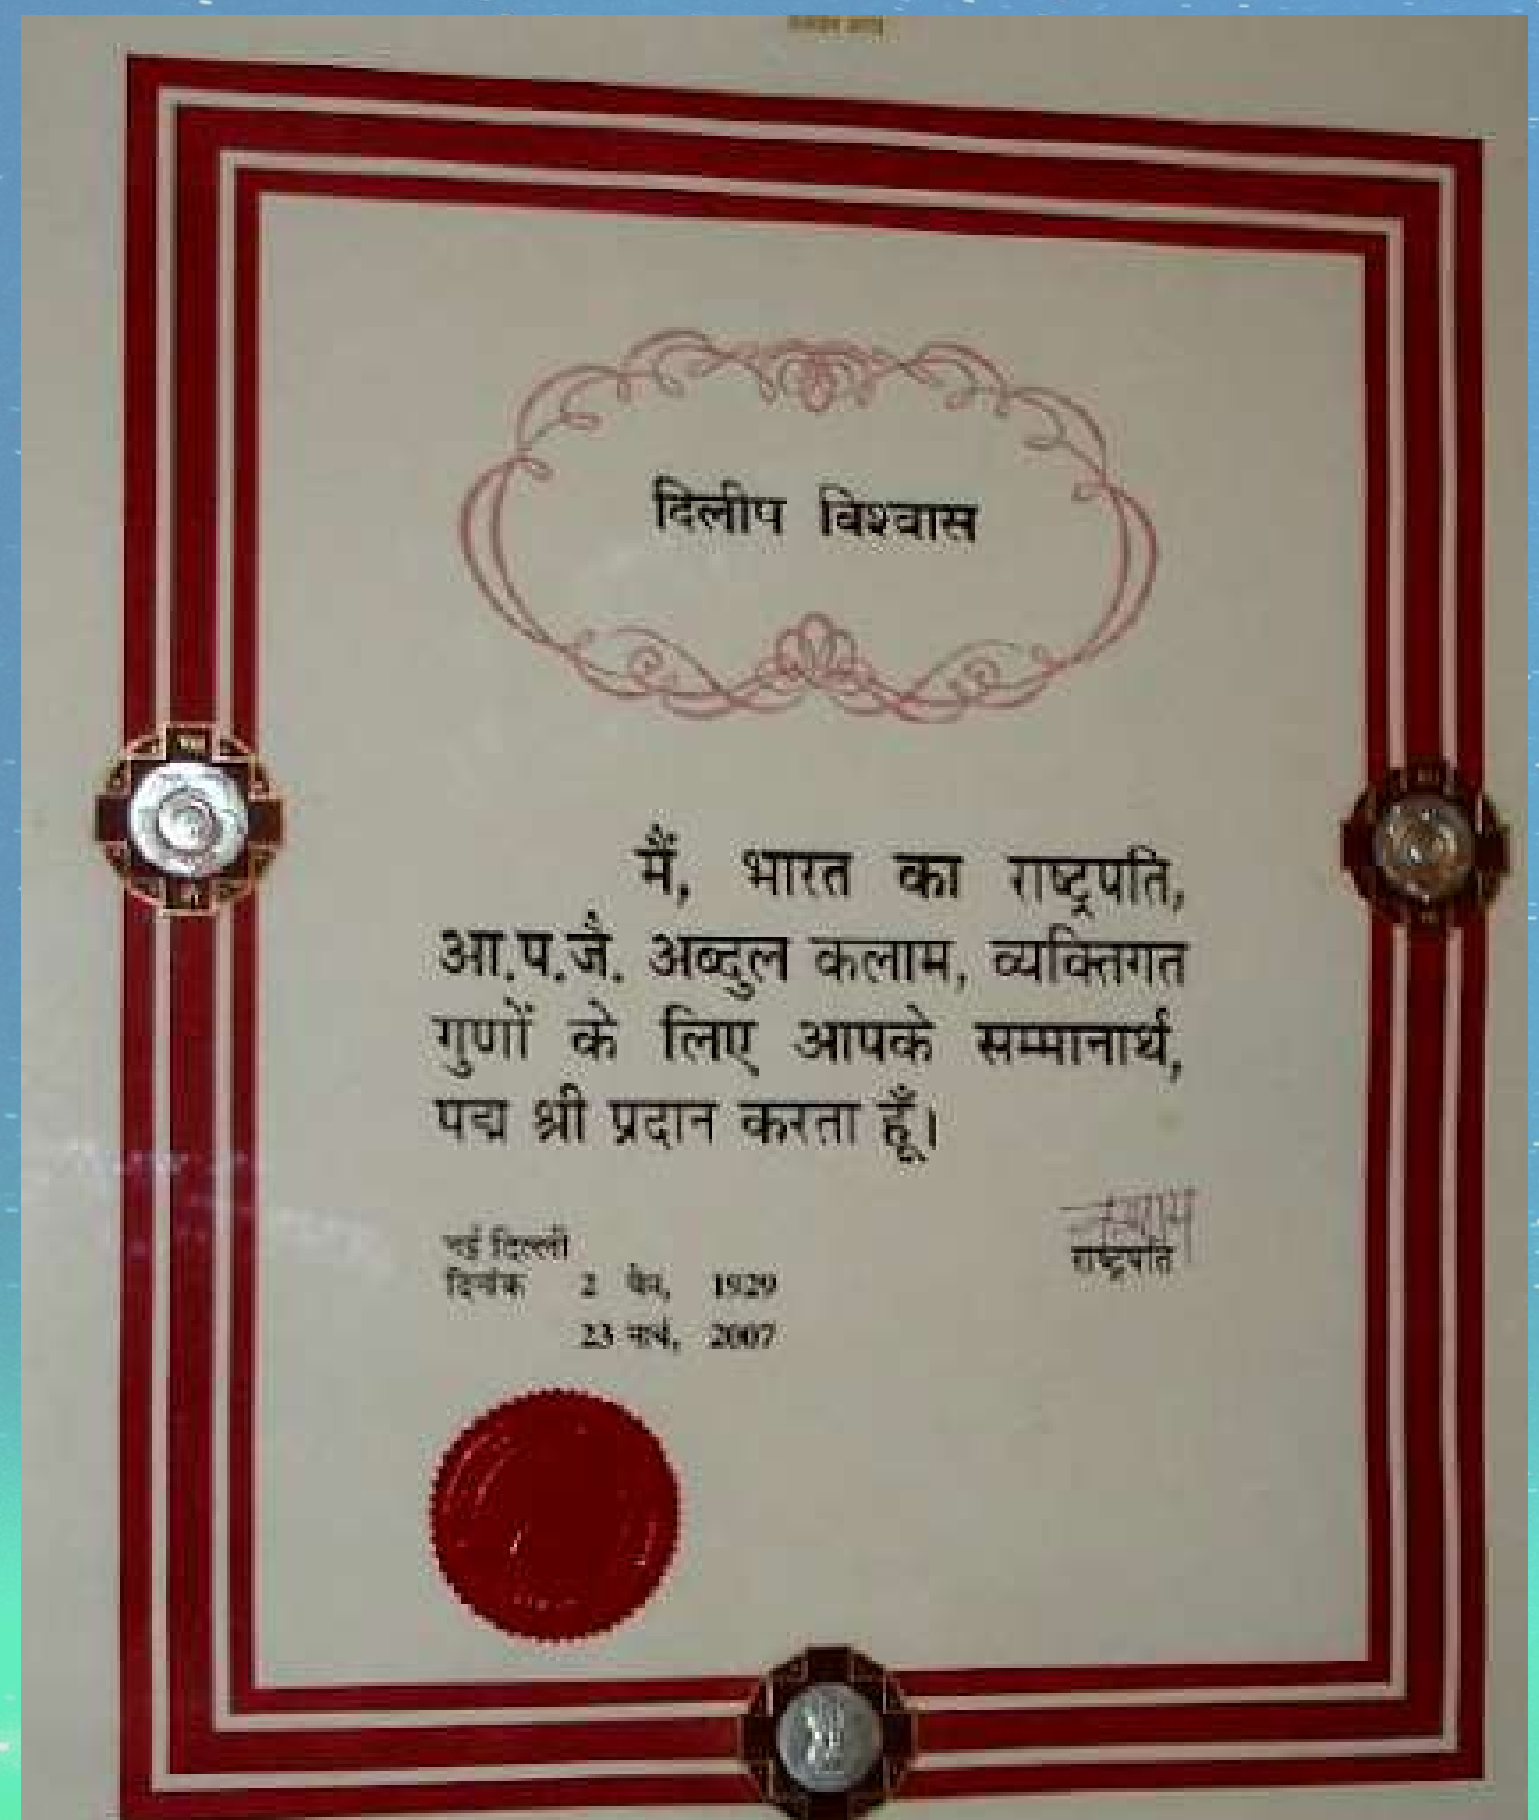 दिलीप विश्वास
मैं, भारत का राष्ट्रपति,
आ.प.जै. अब्दुल कलाम, व्यक्तिगत
गुणों के लिए आपके सम्मानार्थ,
पद्म श्री प्रदान करता हूँ।
राष्ट्रपति
नई दिल्ली
दिनांक 2 चैत्र, 1929
23 मार्च, 2007